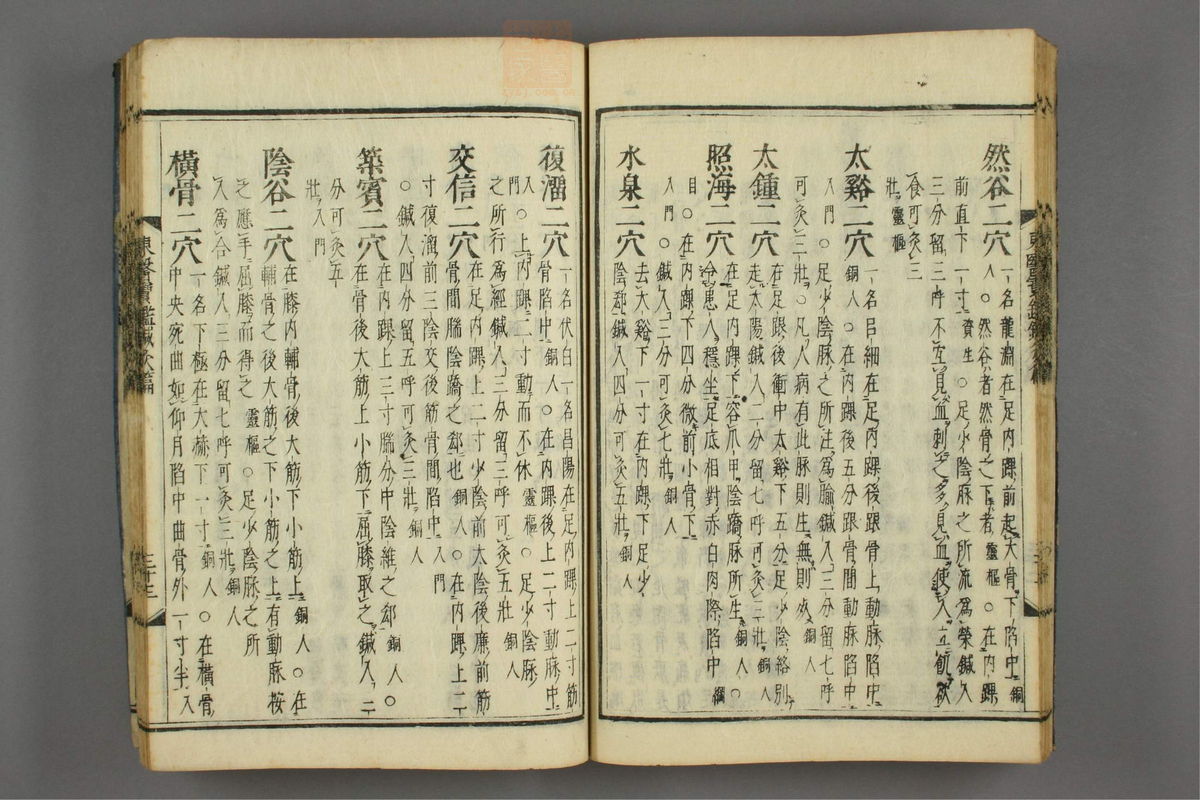 東醫寶鑑鍼灸篇
然谷二穴 一名龍淵在足內踝前起大骨下陷中銅
人○然谷者然骨之下者靈樞○在內踝
前直下一寸資生○足少陰脉之所流爲滎鍼入
三分留三呼不宜見血刺之多見血使人立飢欲
食可灸三
壯靈樞
太谿二穴 一名呂細在足內踝後跟骨上動脉陷中
銅人○在內踝後五分跟骨間動脉陷中
入門○足少陰脉之所注爲腧鍼入三分留七呼
可灸三壯○凡人病有此脉則生無則死銅人
太鍾二穴 在足跟後衝中太谿下五分足少陰絡別
走太陽鍼入二分留七呼可灸三壯銅人
照海二穴 在足內踝下容爪甲陰蹻脉所生銅人○
令患人穩坐足底相對赤白肉際陷中綱
目○在內踝下四分微前小骨下
入門○鍼入三分可灸七壯銅人
水泉二穴 去太谿下一寸在內踝下足少
陰郄鍼入四分可灸五壯銅人
復溜二穴 一名伏白一名昌陽在足內踝上二寸筋
骨陷中銅人○在內踝後上二寸動脉中
入門○上內踝二寸動而不休靈樞○足少陰脉
之所行爲經鍼入三分留三呼可灸五壯銅人
交信二穴 在足內踝上二寸少陰前太陰後廉前筋
骨間腨陰蹻之郄也銅人○在內踝上二
寸復溜前三陰交後筋骨間陷中入門
○鍼入四分留五呼可灸三壯銅人
築賓二穴 在內踝上三寸腨分中陰維之郄銅人○
在骨後大筋上小筋下屈膝取之鍼入二
分可灸五
壯入門
陰谷二穴 在膝內輔骨後大筋下小筋上銅人○在
輔骨之後大筋之下小筋之上有動脉按
之應手屈膝而得之靈樞○足少陰脉之所
入爲合鍼入三分留七呼可灸三壯銅人
橫骨二穴 一名下極在大赫下一寸銅人○在橫骨
中央宛曲如仰月陷中曲骨外一寸半入
東醫寶鑑鍼灸篇
三十三